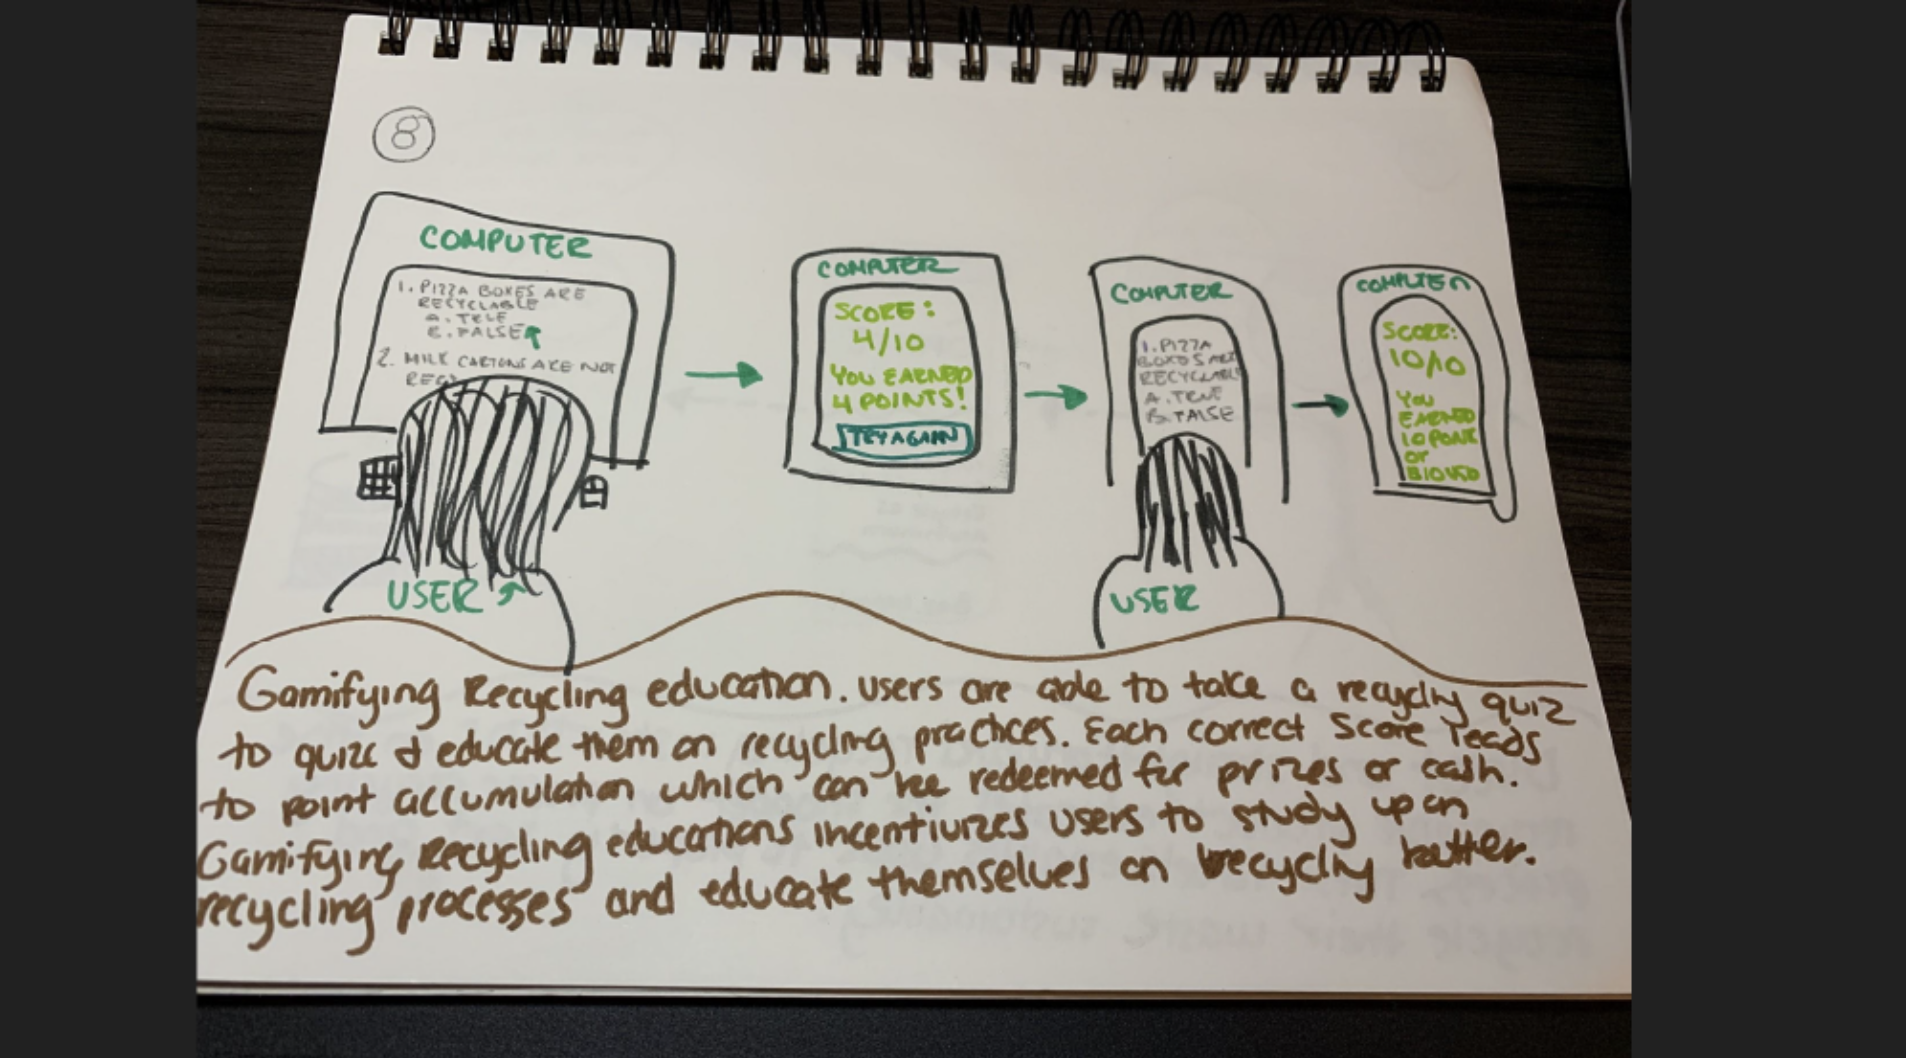 8
COMPUTER
1. PIZZA BOXES ARE
RECYCLABLE
A. TRUE
B. FALSE
2. MILK CARTONS ARE NOT
REC
USER
COMPUTER
SCORE:
4/10
YOU EARNED
4 POINTS!
TRY AGAIN
COMPUTER
1. PIZZA
BOXES ARE
RECYCLABLE
A. TRUE
B. FALSE
USER
COMPUTER
SCORE:
10/10
YOU
EARNED
10 POINT
OR
Gamifying Recycling education. Users are able to take a recycling quiz
to quiz & educate them on recycling practices. Each correct score leads
to point accumulation which can be redeemed for prizes or cash.
Gamifying Recycling educations incentivizes users to study up on
recycling processes and educate themselves on recycling better.